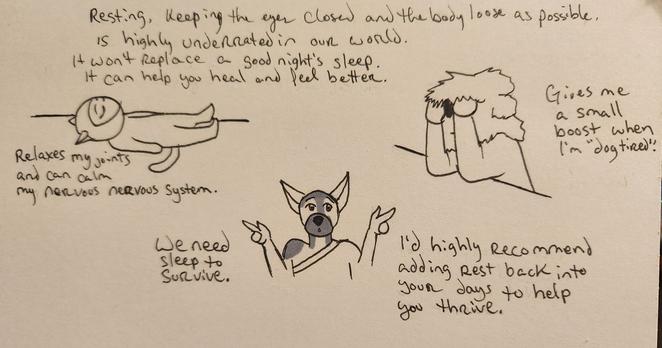 Resting, keeping the eyes closed and the body loose as possible.
is highly underrated in our world.
it won't replace a good night's sleep.
it can help you heal and feel better.
Relaxes my joints
and can calm
my nervous nervous system.
Gives me
a small
boost when
I'm "dog tired".
We need
sleep to
survive.
I'd highly recommend
adding rest back into
your days to help
you thrive.